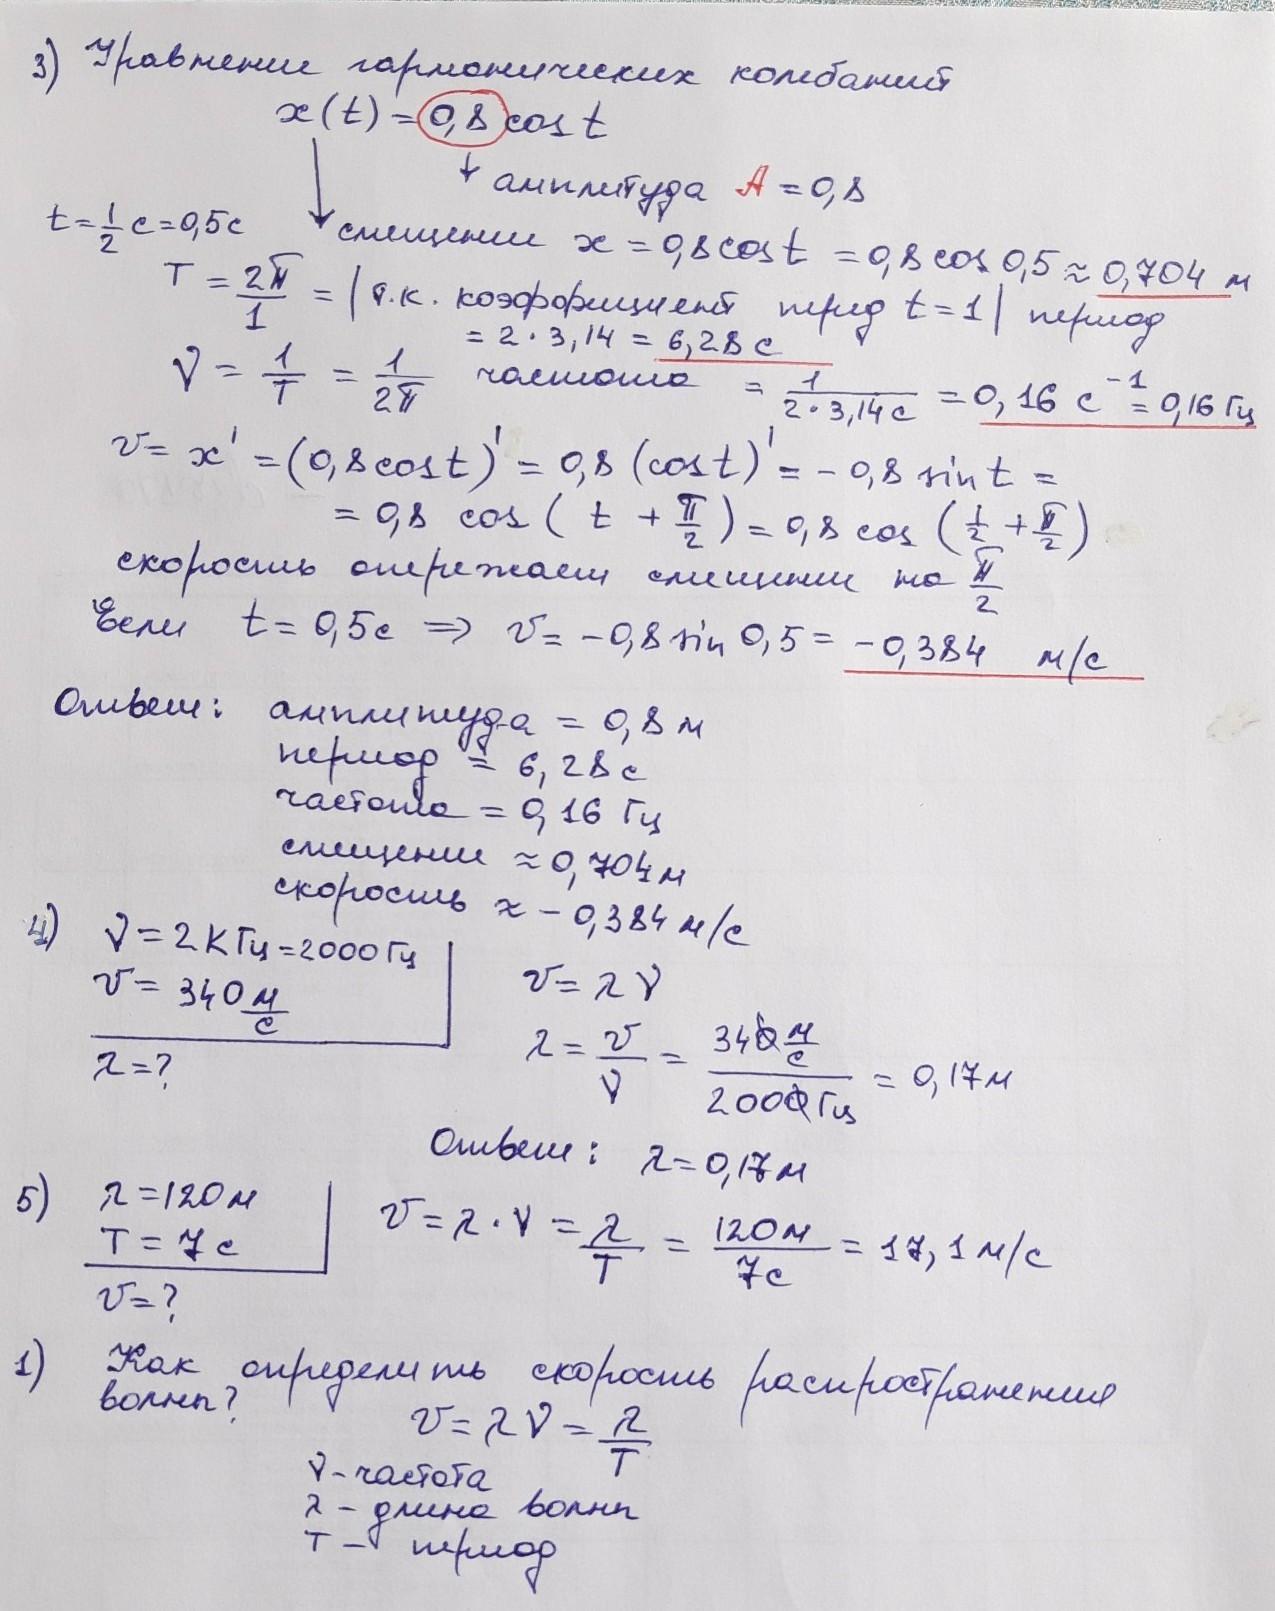 3) Уравнение гармонических колебаний
x(t) = 0,8 cos t
амплитуда A = 0,8
t = 1/2 с = 0,5с
смещение x = 0,8 cos t = 0,8 cos 0,5 ≈ 0,704 м
T = 2π/1 = | т.к. коэффициент перед t = 1 | период
= 2 · 3,14 = 6,28 с
ν = 1/T = 1/2π частота = 1/(2·3,14 с) = 0,16 с⁻¹ = 0,16 Гц
v = x' = (0,8 cos t)' = 0,8 (cos t)' = - 0,8 sin t =
= 0,8 cos ( t + π/2 ) = 0,8 cos ( 1/2 + π/2 )
скорость опережает смещение на π/2
Если t = 0,5с ⇒ v = -0,8 sin 0,5 = -0,384 м/с
Ответ: амплитуда = 0,8 м
период = 6,28 с
частота = 0,16 Гц
смещение ≈ 0,704 м
скорость ≈ - 0,384 м/с
4) ν = 2 кГц = 2000 Гц
v = 340 м/с
λ = ?
v = λ ν
λ = v/ν = 340 м/с / 2000 Гц = 0,17 м
Ответ: λ = 0,17 м
5) λ = 120 м
T = 7 с
v = ?
v = λ · ν = λ/T = 120 м / 7 с = 17,1 м/с
1) Как определить скорость распространения
волны?
v = λ ν = λ/T
ν - частота
λ - длина волны
T - период